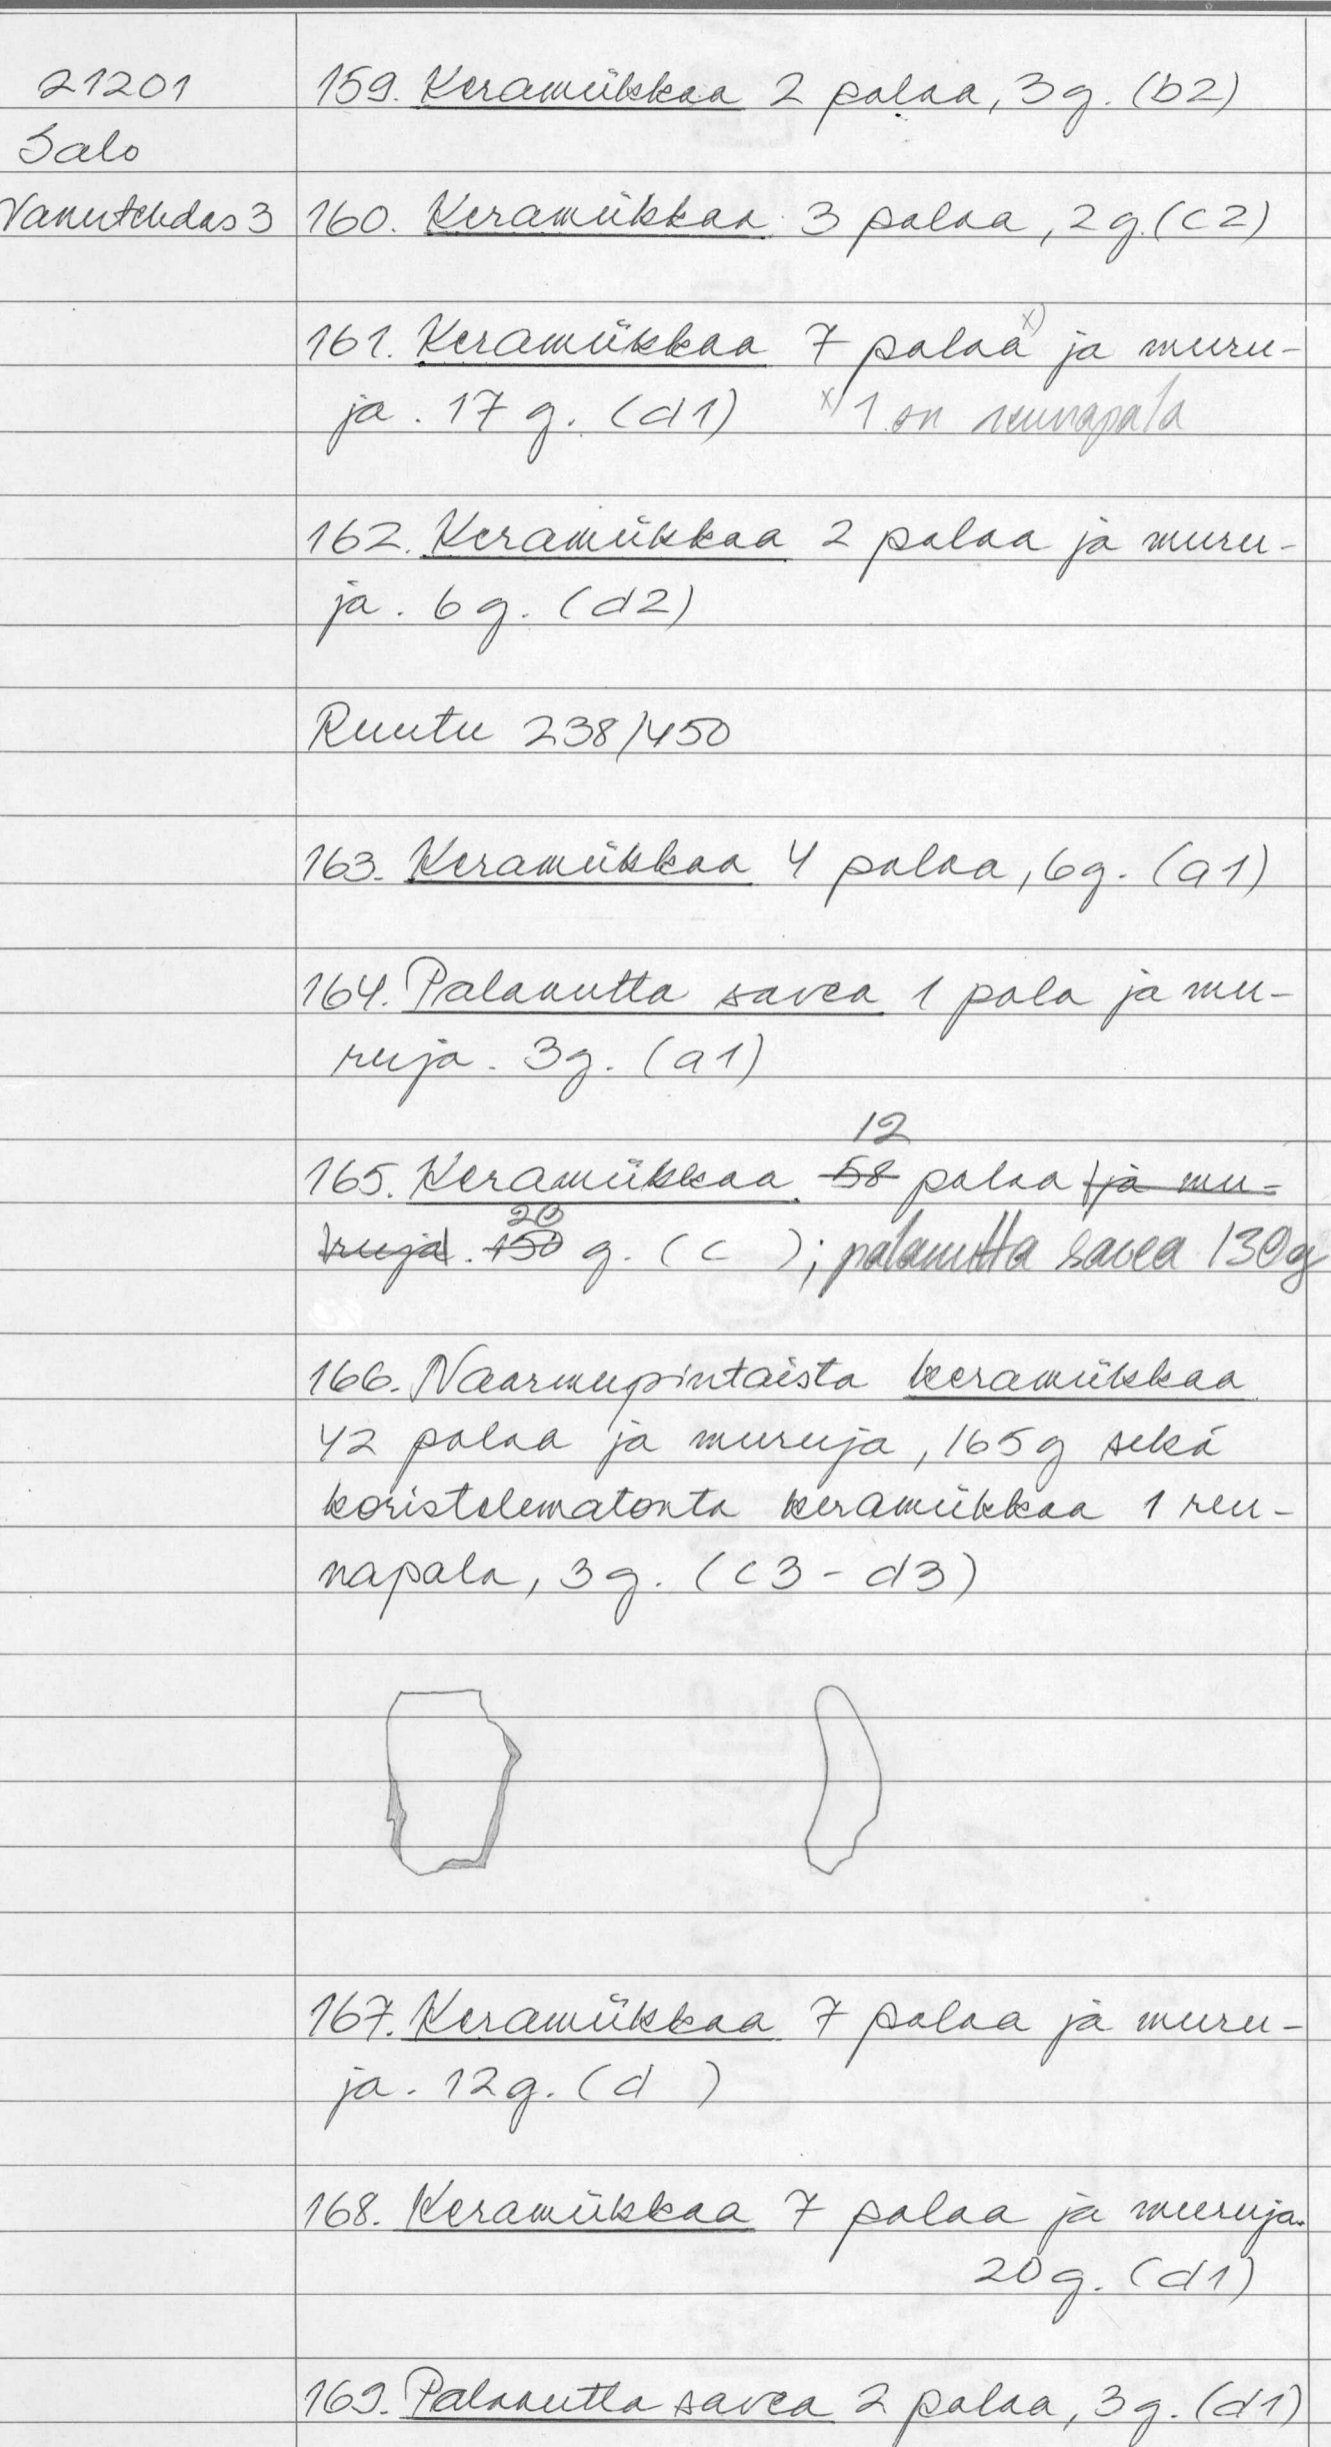 21201
Salo
Vanutehdas 3
159. Keramiikkaa 2 palaa, 3g. (b2)
160. Keramiikkaa 3 palaa, 2g. (c2)
161. Keramiikkaa 7 palaa x) ja muru-
ja. 17 g. (d1) x) 1 on reunapala
162. Keramiikkaa 2 palaa ja muru-
ja. 6g. (d2)
Ruutu 238/450
163. Keramiikkaa 4 palaa, 6g. (a1)
164. Palanutta savea 1 pala ja mu-
ruja. 3g. (a1)
12
165. Keramiikkaa 58 palaa ja mu-
20
ruja. 150 g. (c ); palanutta savea 130g
166. Naarmupintaista keramiikkaa
42 palaa ja muruja, 165g sekä
koristelematonta keramiikkaa 1 reu-
napala, 3g. (c3 - d3)
167. Keramiikkaa 7 palaa ja muru-
ja. 12g. (d )
168. Keramiikkaa 7 palaa ja muruja.
20g. (d1)
169. Palanutta savea 2 palaa, 3g. (d1)